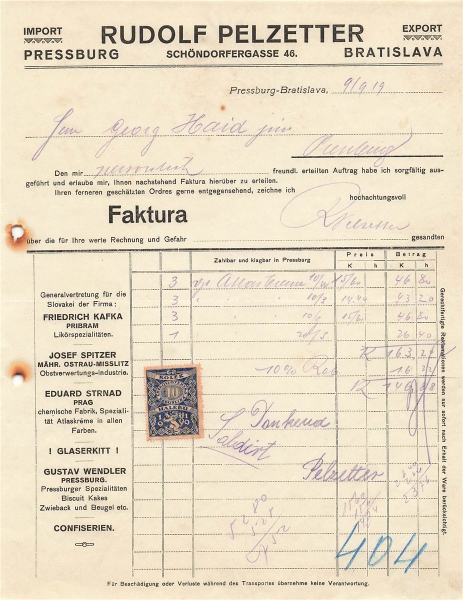 IMPORT RUDOLF PELZETTER EXPORT
PRESSBURG SCHÖNDORFERGASSE 46. BRATISLAVA
Pressburg-Bratislava, 9/9 19
Herrn Georg Haid jun
Den mir freundl. erteilten Auftrag habe ich sorgfältig aus-
geführt und erlaube mir, Ihnen nachstehend Faktura hierüber zu erteilen.
Ihren ferneren geschätzten Ordres gerne entgegensehend, zeichne ich
hochachtungsvoll
Faktura
über die für Ihre werte Rechnung und Gefahr gesandten
Zahlbar und klagbar in Pressburg Preis Betrag
K h K h
Generalvertretung für die
Slovakei der Firma:
FRIEDRICH KAFKA
PRIBRAM
Likörspezialitäten.
JOSEF SPITZER
MÄHR. OSTRAU-MISSLITZ
Obstverwertungs-Industrie.
EDUARD STRNAD
PRAG
chemische Fabrik, Speziali-
tät Atlaskrème in allen
Farben.
! GLASERKITT !
GUSTAV WENDLER
PRESSBURG.
Pressburger Spezialitäten
Biscuit Kakes
Zwieback und Beugel etc.
CONFISERIEN.
3 46 80
3 10/2 14.40 43 20
3 46 80
1 26 40
10% Rab
10
Dankend
Saldirt
Pelzetter
404
Gerechtfertigte Reklamationen werden nur sofort nach Erhalt der Ware berücksichtigt.
Für Beschädigung oder Verluste während des Transportes übernehme keine Verantwortung.